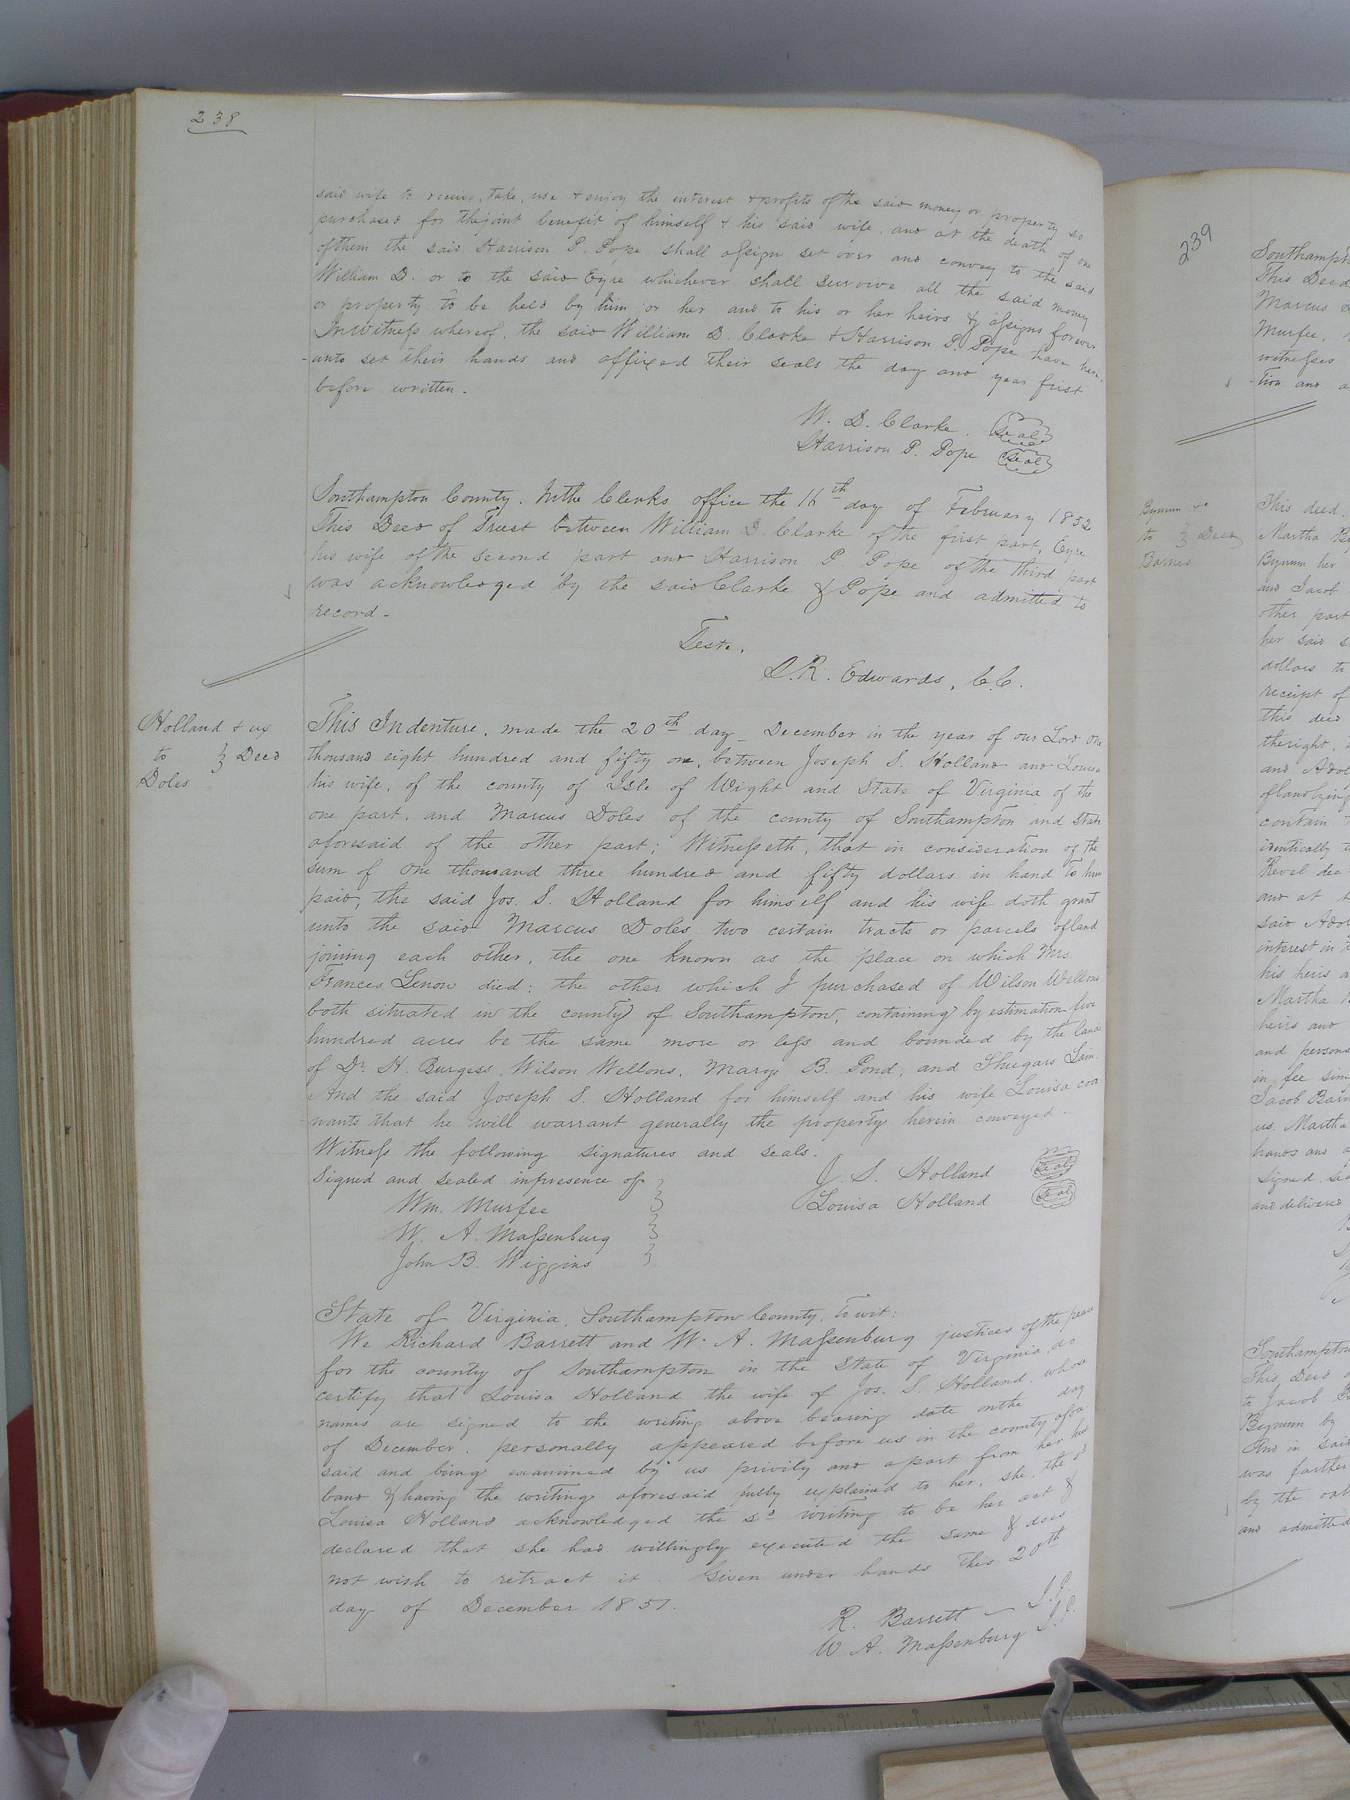 238
said wife to receive, take, use & enjoy the interest & profits of the said money or property so
purchased for the joint benefit of himself & his said wife, and at the death of one
of them the said Harrison P. Pope shall assign set over and convey to the said
William D. or to the said Eyre whichever shall survive all the said money
or property to be held by him or her and to his or her heirs & assigns forever
In Witness whereof, the said William D. Clarke & Harrison P. Pope have here-
-unto set their hands and affixed their seals the day and year first
before written.
W. D. Clarke. Seal
Harrison P. Pope Seal
Southampton County. In the Clerks office the 16th day of February 1852
This Deed of Trust between William D. Clarke of the first part, Eyre
his wife of the second part and Harrison P. Pope of the third part
was acknowledged by the said Clarke & Pope and admitted to
record.
Teste,
L. R. Edwards, C.C.
Holland & ux
to } Deed
Doles
This Indenture, made the 20th day - December in the year of our Lord one
thousand eight hundred and fifty one, between Joseph S. Holland and Louisa
his wife, of the county of Isle of Wight and State of Virginia of the
one part, and Marcus Doles of the county of Southampton and State
aforesaid of the other part; Witnesseth, that in consideration of the
sum of one thousand three hundred and fifty dollars in hand to him
paid, the said Jos. S. Holland for himself and his wife doth grant
unto the said Marcus Doles two certain tracts or parcels of land
joining each other, the one known as the place on which Mrs.
Frances Lenow died; the other which I purchased of Wilson Wellons
both situated in the county of Southampton, containing by estimation five
hundred acres be the same more or less and bounded by the lands
of Dr. H. Burgess, Wilson Wellons, Mary B. Pond, and Shugars Lain.
And the said Joseph S. Holland for himself and his wife Louisa cov
-nants that he will warrant generally the property herein conveyed.
Witness the following signatures and seals.
Signed and sealed in presence of }
J. S. Holland Seal
Wm. Murfee }
Louisa Holland Seal
W. A. Massenburg }
John B. Wiggins }
State of Virginia, Southampton County, to wit:
We Richard Barrett and W. A. Massenburg justices of the peace
for the county of Southampton in the State of Virginia, do
certify that Louisa Holland the wife of Jos. S. Holland, whose
names are signed to the writing above bearing date on the day
of December, personally appeared before us in the county afore
said and being examined by us privily and apart from her hus
band & having the writing aforesaid fully explained to her, she the sd
Louisa Holland acknowledged the sd writing to be her act &
declared that she had willingly executed the same & does
not wish to retract it. Given under hands this 20th
day of December 1851.
R. Barrett - J.P.
W. A. Massenburg J.P.
239
Southampt
This Deed
Marcus
Murfee,
witnesses
-tion and a
Bynum &c
to } Deed
Barnes
This deed,
Martha By
Bynum her
and Jacob
other part
her said
dollars to
receipt of
this deed
the right,
and Adol
of land lying
contain
identically
Revel dec
and at
said Adol
interest in
his heirs a
Martha
heirs and
and persons
in fee sim
Jacob Barn
us. Martha
hands and
Signed, Se
and delivered
Southampton
This Deed
to Jacob B
Bynum by
And in said
was farther
by the oath
and admitted